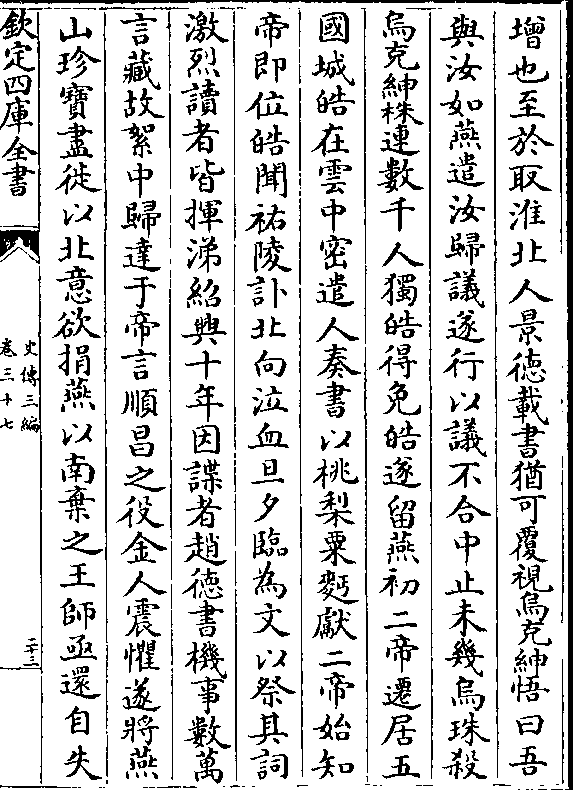 增也至於取淮北人景德載書猶可覆視烏克紳悟曰吾
與汝如燕遣汝歸議遂行以議不合中止未幾烏珠殺
烏克紳株連數千人獨皓得免皓遂留燕初二帝遷居五
國城皓在雲中密遣人奏書以桃梨粟麪獻二帝始知
帝即位皓聞祐陵訃北向泣血旦夕臨為文以祭其詞
激烈讀者皆揮涕紹興十年因諜者趙德書機事數萬
言藏故絮中歸達于帝言順昌之役金人震懼遂將燕
山珍寶盡徙以北意欲捐燕以南棄之王師亟還自失
欽定四庫全書
史傳三編
卷三十七
二十三